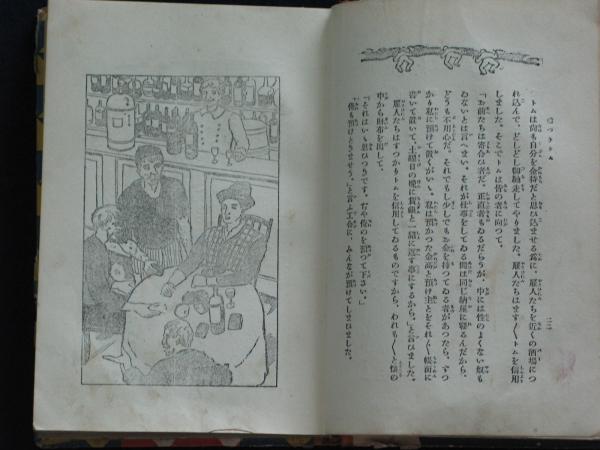 トムは尚も自分を金持だと思ひ込ませる為に、雇人たちを近くの酒場につ
れ込んで、どしどし御馳走してやりました。雇人たちはます〳〵トムを信用
しました。そこでトムは皆の者に向つて、
「お前たちは寄合ひ者だ。正直者もゐるだらうが、中には性のよくない奴も
ゐないとは云へまい。それが仕事をしてゐる間は同じ納屋に寝るんだから、
どうも不用心だ。それでも少しでもお金を持つてゐる者があつたら、すつ
かり私に預けて置くがいゝ。私は預かつた金高と預け主とをそれ〴〵帳面に
書いて置いて、土曜日の晩に貨銀と一緒に返す事にするから。」と言ひました。
雇人たちはすつかりトムを信用してゐるものですから、われも〳〵と懐の
中から財布を出して、
「それはいゝ思ひつきです。ぢや俺のを預つて下さい。」
「俺も預けときませう。」と言ふ工合に、みんなが預けてしまひました。